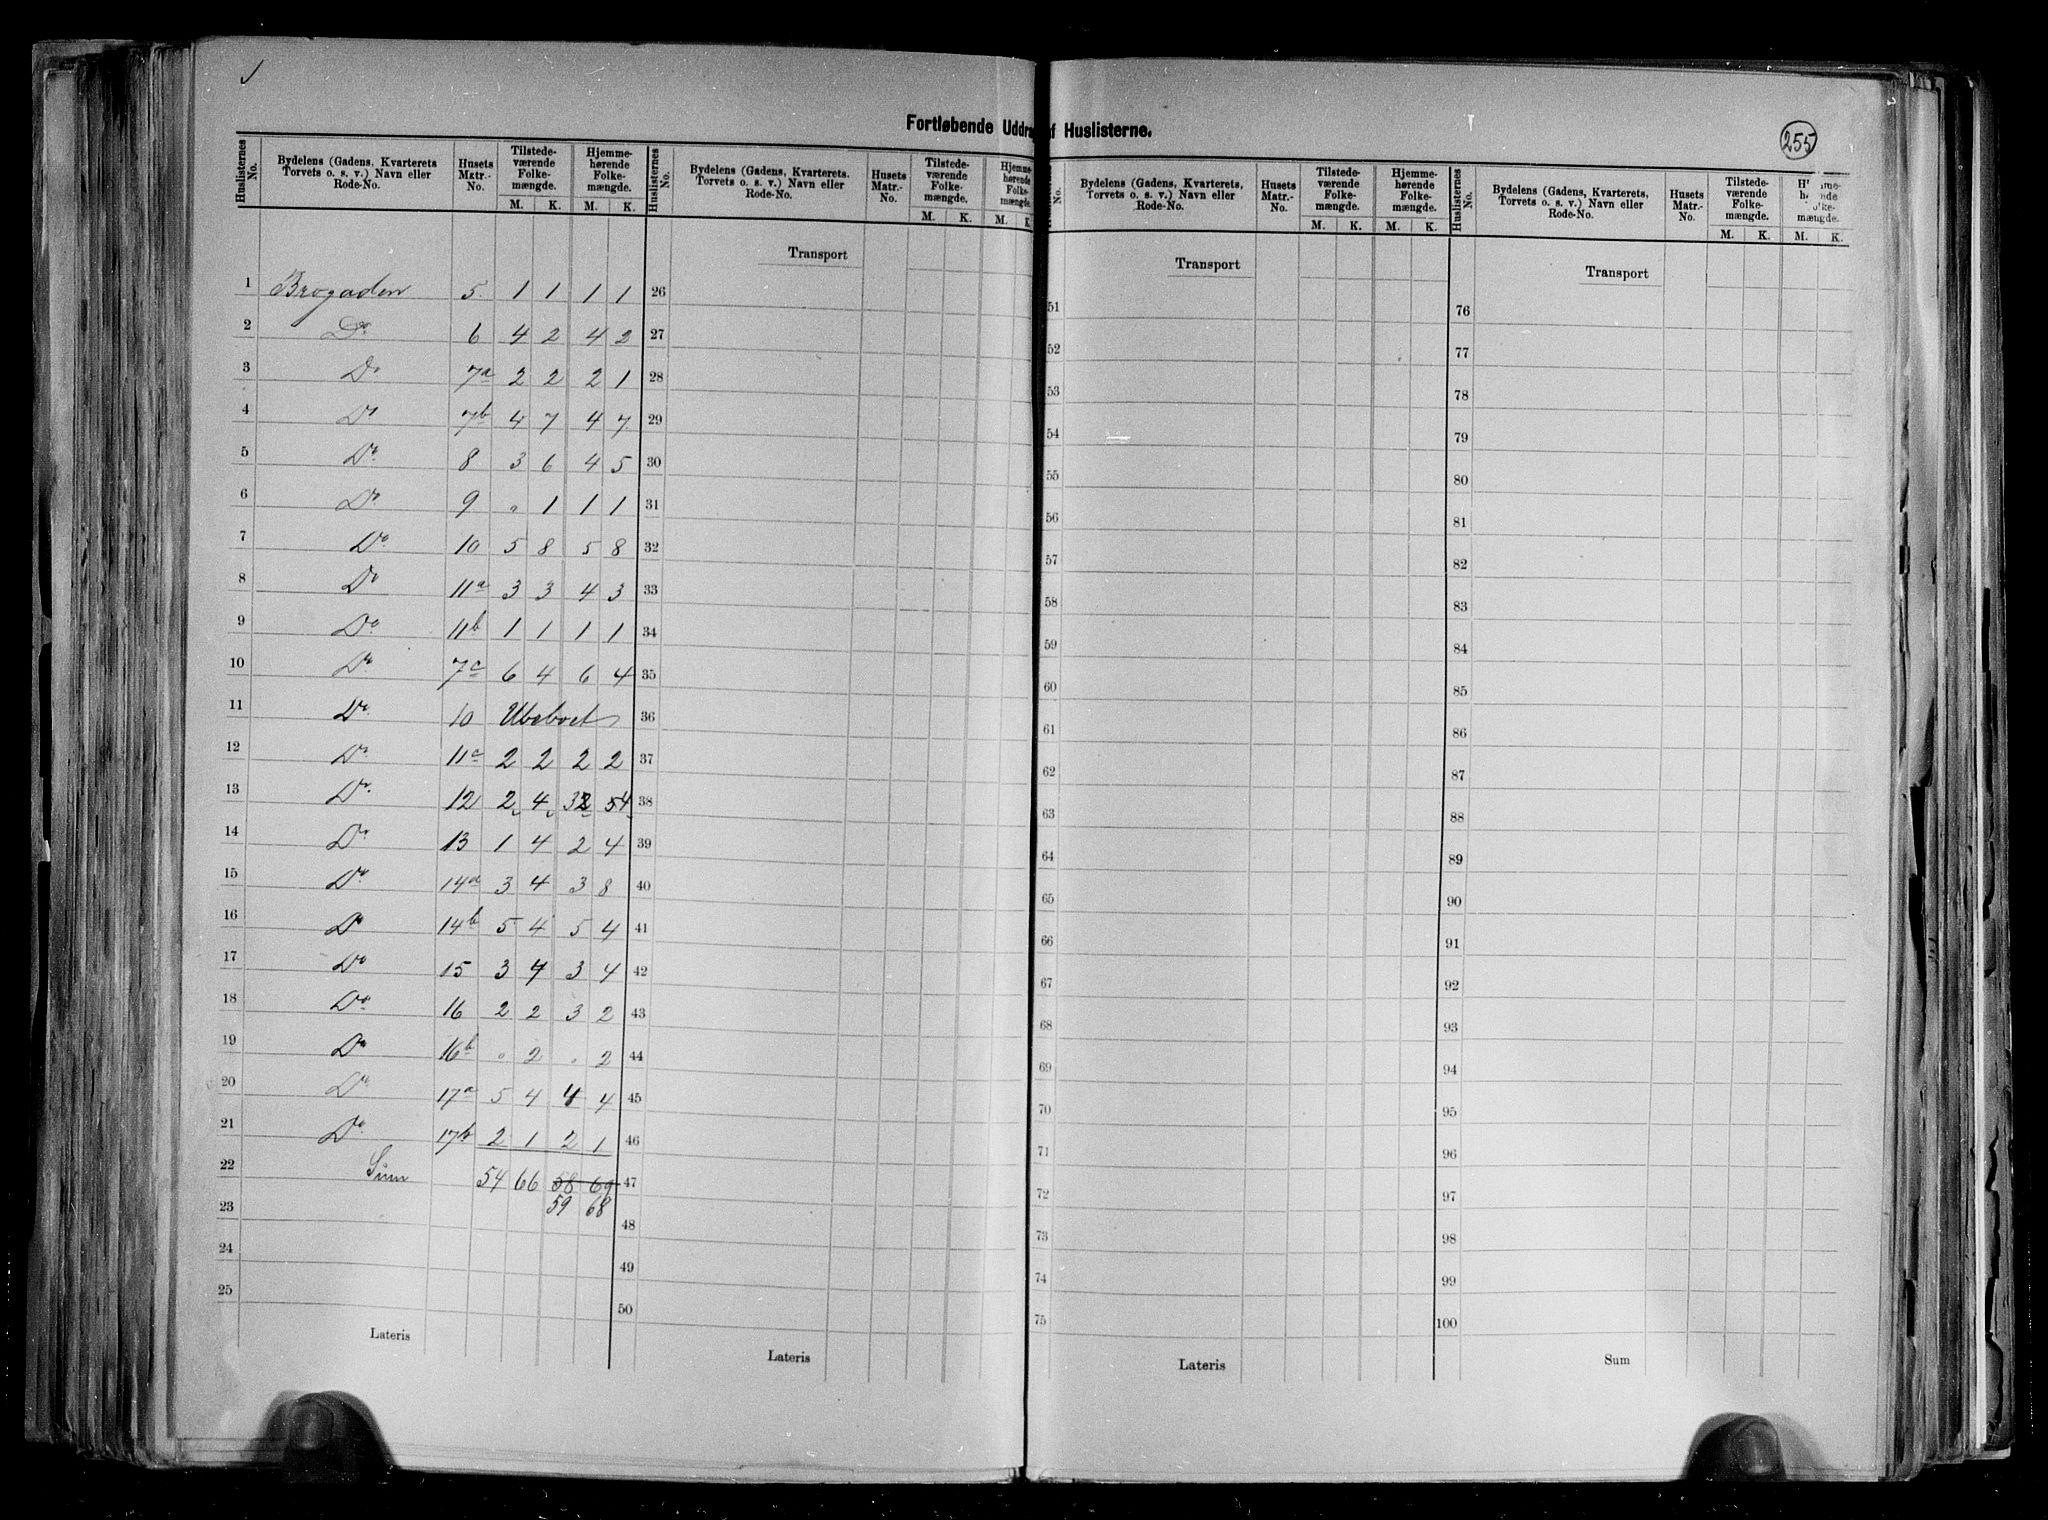 Fortløbende Uddra f Huslisterne.
255
Huslisternes No. | Bydelens (Gadens, Kvarterets Torvets o. s. v.) Navn eller Rode-No. | Husets Matr.-No. | Tilstede-værende Folke-mængde. M. K. | Hjemme-hørende Folke-mængde. M. K.
1 Brogaden 5. 1 1 1 1
2 Do. 6 4 2 4 2
3 Do 7a 2 2 2 1
4 Do 7b 4 7 4 7
5 Do. 8 3 6 4 5
6 Do. 9 " 1 1 1
7 Do. 10 5 8 5 8
8 Do 11a 3 3 4 3
9 Do. 11b 1 1 1 1
10 Do. 7c 6 4 6 4
11 Do. 10 Ubeboet
12 Do. 11c 2 2 2 2
13 Do. 12 2 4 32 54
14 Do. 13 1 4 2 4
15 Do. 14a 3 4 3 8
16 Do 14b 5 4 5 4
17 Do 15 3 4 3 4
18 Do. 16 2 2 3 2
19 Do 16b " 2 " 2
20 Do. 17a 5 4 4 4
21 Do. 17b 2 1 2 1
22 Sum 54 66 58 69
23 59 68
24
25
Lateris
Huslisternes No. | Bydelens (Gadens, Kvarterets. Torvets o. s. v.) Navn eller Rode-No. | Husets Matr.-No. | Tilstede-værende Folke-mængde. M. K. | Hjemme-hørende Folke-mængde. M. K.
Transport
26
27
28
29
30
31
32
33
34
35
36
37
38
39
40
41
42
43
44
45
46
47
48
49
50
Lateris
No. | Bydelens (Gadens, Kvarterets, Torvets o. s. v.) Navn eller Rode-No. | Husets Matr.-No. | Tilstede-værende Folke-mængde. M. K. | Hjemme-hørende Folke-mængde. M. K.
Transport
51
52
53
54
55
56
57
58
59
60
61
62
63
64
65
66
67
68
69
70
71
72
73
74
75
Lateris
Huslisternes No. | Bydelens (Gadens, Kvarterets, Torvets o. s. v.) Navn eller Rode-No. | Husets Matr.-No. | Tilstede-værende Folke-mængde. M. K. | H mme-h ende olke-mængde. M. K.
Transport
76
77
78
79
80
81
82
83
84
85
86
87
88
89
90
91
92
93
94
95
96
97
98
99
100
Sum